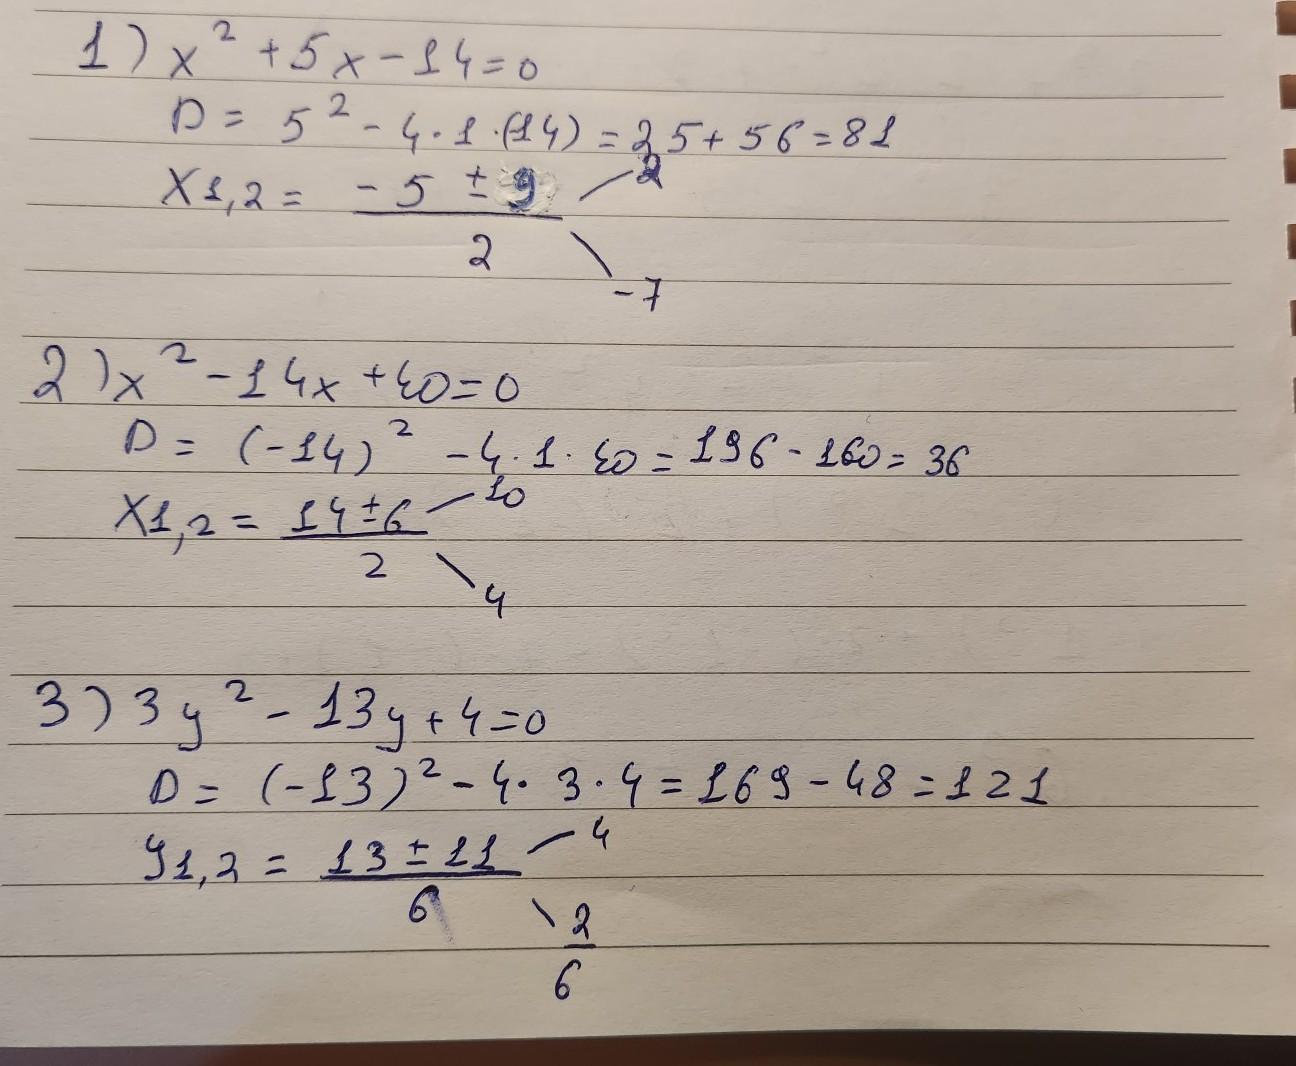 1) x² + 5x - 14 = 0
D = 5² - 4 · 1 · (14) = 25 + 56 = 81
X1,2 = (-5 ± 9) / 2
2
-7
2) x² - 14x + 40 = 0
D = (-14)² - 4 · 1 · 40 = 196 - 160 = 36
X1,2 = (14 ± 6) / 2
10
4
3) 3y² - 13y + 4 = 0
D = (-13)² - 4 · 3 · 4 = 169 - 48 = 121
y1,2 = (13 ± 11) / 6
4
2/6